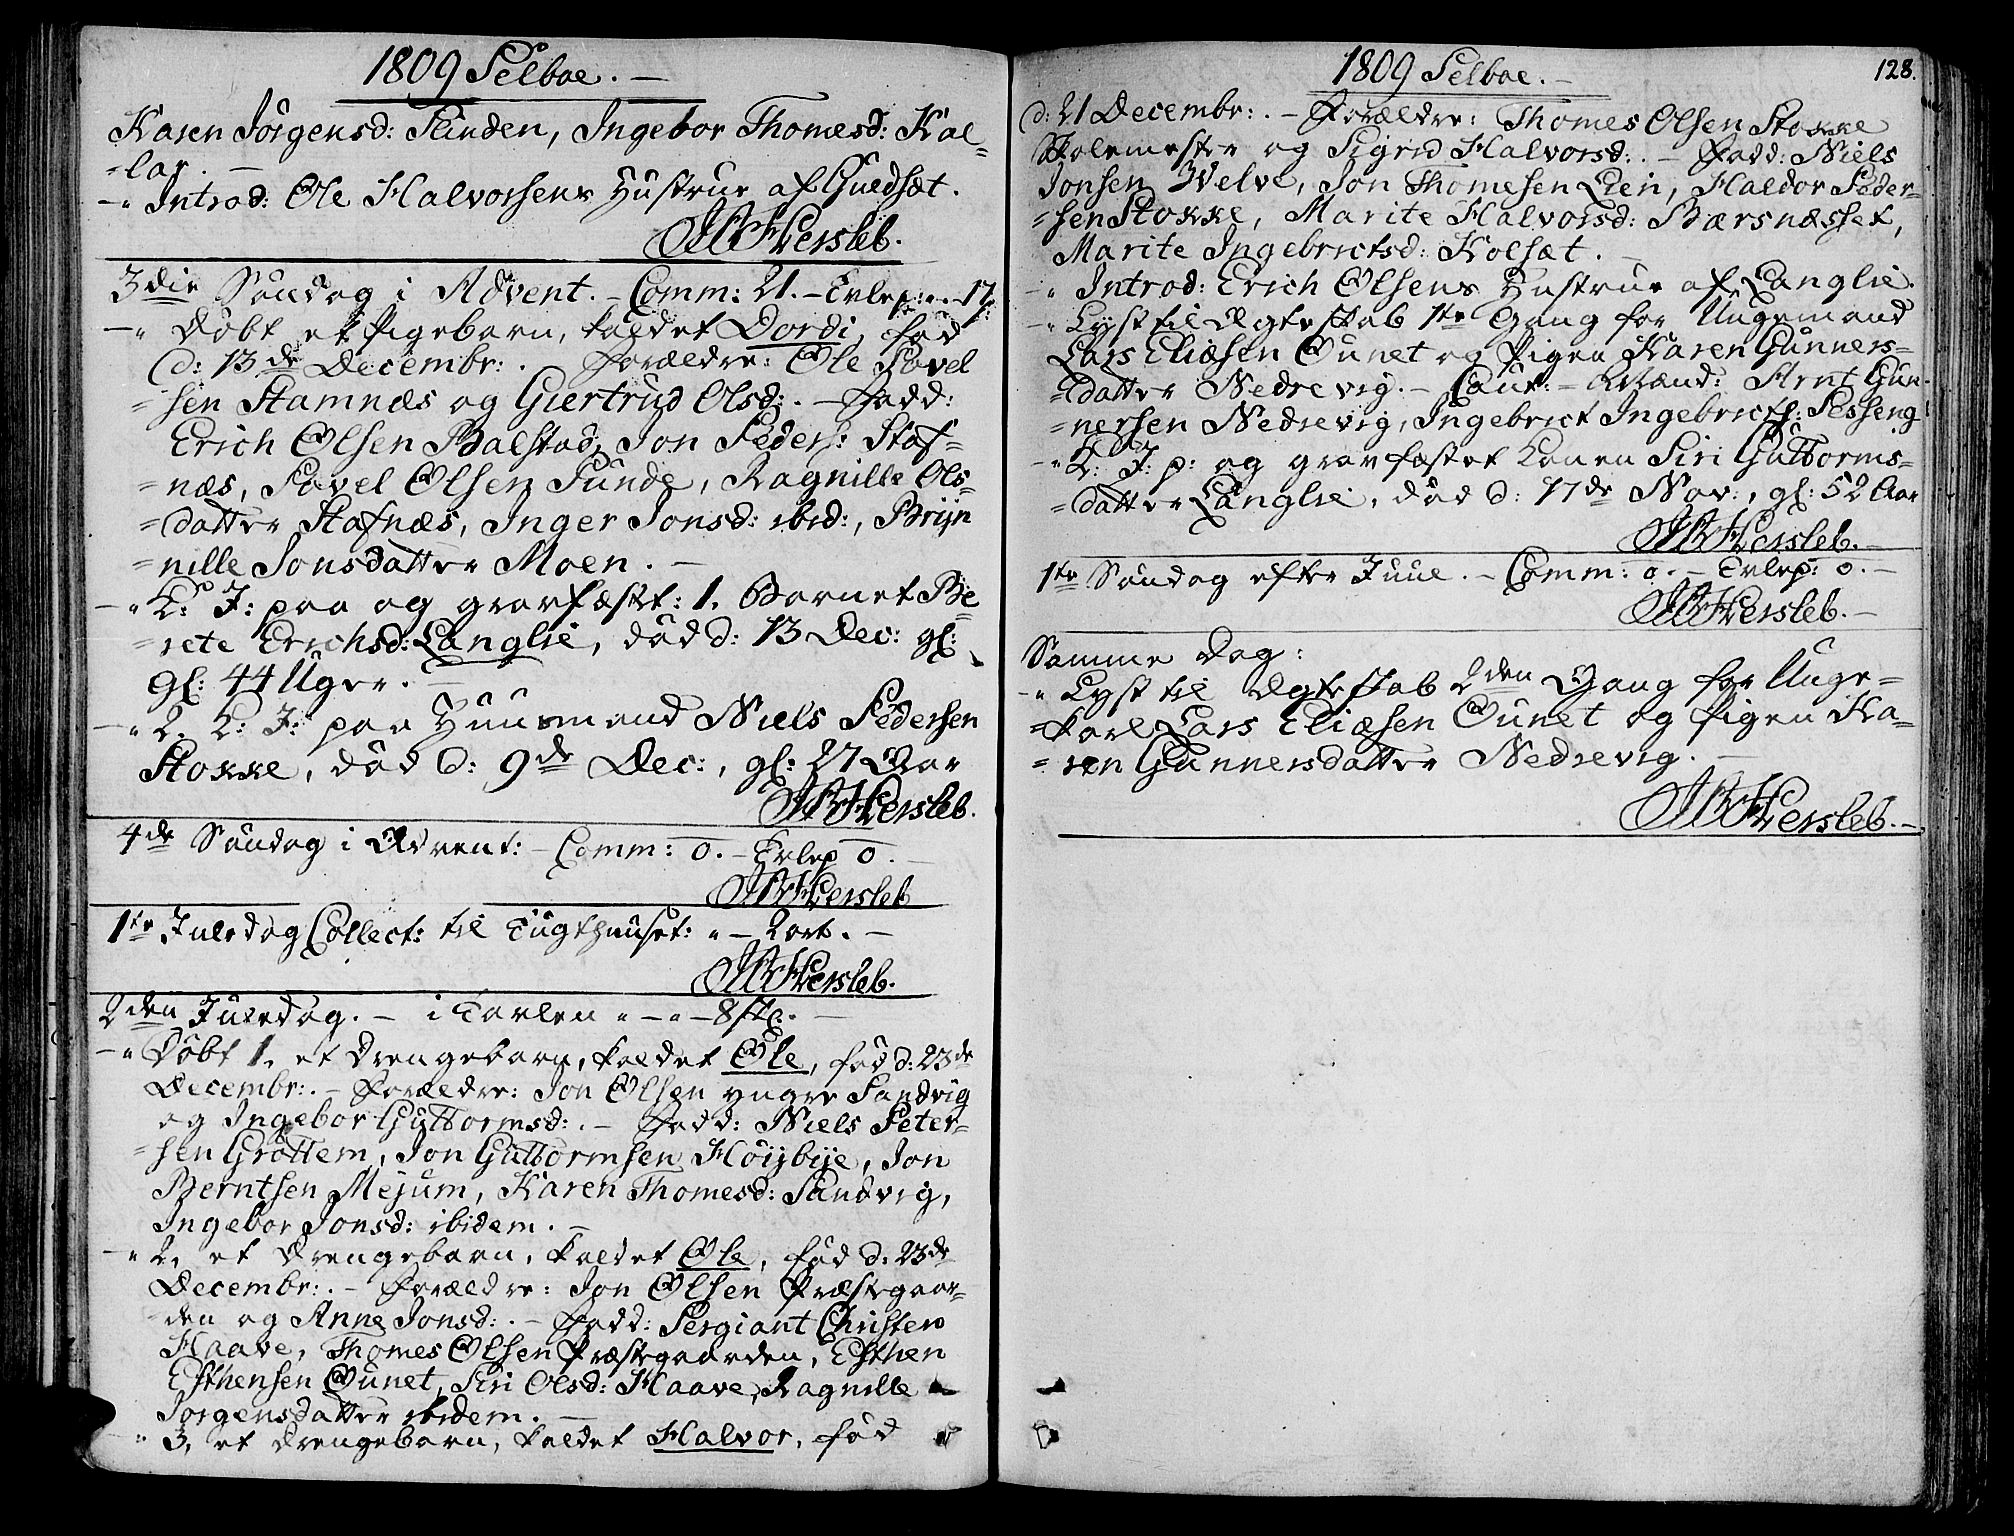 1809 Selboe. —
Karen Jörgensd: Slinden, Ingebor Thomesd: Kal=
=lar. —
—„ Introd: Ole Halvorsens Hustrue af Guldsæt.
Hersleb.
3die Söndag i Advent. — Comm: 21. — Exlep: „. 17
—„ Döbt et Pigebarn, kaldet Dordi, föd
d: 13de Decembr: . Forældre: Ole Povel
=sen Stamnæs og Giertrud Olsd: . — Fadd:
Erich Olsen Balstad, Jon Peders: Stof=
=næs, Povel Olsen Punde, Ragnille Ols=
=datter Stofnæs, Inger Jonsd: ibid:, Bryn
=nille Jonsdatter Moen. —
—„ L: J: paa og gravfæstet: 1. Barnet Be=
=rete Erichsd: Langlie, död d: 13 Dec: gl:
gl: 44 Uger. —
—„ 2. L: J: paa Huusmand Niels Pedersen
Stokke, död d: 9de Dec:, gl: 27 Aar
Hersleb.
4de Söndag i Advent: — Comm: 0. — Exlep 0. —
Hersleb
1te Juledag Collect: til Tugthuuset: „ — 2 ort. —
Hersleb.
2den Juledag. — i Tavlen „ — „ — 8 sk. —
—„ Döbt 1. et Drengebarn, kaldet Ole, föd d: 23de
Decembr: . — Forældre: Jon Olsen yngre Sandvig
og Ingebor Guttormsd: . — Fadd: Niels Peter=
=sen Gröttem, Jon Guttormsen Höiybye, Jon
Berntsen Mejum, Karen Thomesd: Sandvig,
Ingebor Jonsd: ibidem. —
—„ 2. et Drengebarn, kaldet Ole, föd d. 23de
Decembr: . — Forældre: Jon Olsen Præstegaar=
den og Anne Jonsd: . — Fadd: Sergiant Christen
Haave, Thomes Olsen Præstegaarden, Esthen
Esthensen Ounet, Siri Olsd: Haave, Ragnille
Jorgensdatter ibidem. —
„ 3. et Drengebarn, kaldet Halvor, föd
1809 Selboe. —
128.
d: 21 Decembr: . — Forældre: Thomes Olsen Stokke
Skolemester og Sigrid Halvorsd: . — Fadd: Niels
Jonsen Velve, Jon Thomesen Lien, Haldor Peder=
=sen Stokke, Marite Halvorsd: Bærsnæsset,
Marite Ingebrictsd: Kolset. —
—„ Introd: Erich Olsens Hustrue af Langlie.
—„ Lyst til Ægteskab 1te Gang for Ungemand
Lars Eliæsen Ounet og Pigen Karen Gunners=
=datter Nedrevig. — Caut: — Mænd: Arnt Gun=
=nersen Nedrevig, Ingebrict Ingebricts: Sesseng
—„ L: J: p: og gravfæstet Konen Siri Guttorms=
=datter Langlie, död d: 17de Nov:, gl: 52 Aar
Hersleb. —
1te Söndag efter Juul. — Comm: 0. — Exlep: 0. —
Hersleb. —
Samme Dag:
—„ Lyst til Ægteskab 2den Gang for Unge=
=karl Lars Eliæsen Ounet og Pigen Ka=
=ren Gunnersdatter Nedrevig. —
Hersleb. —